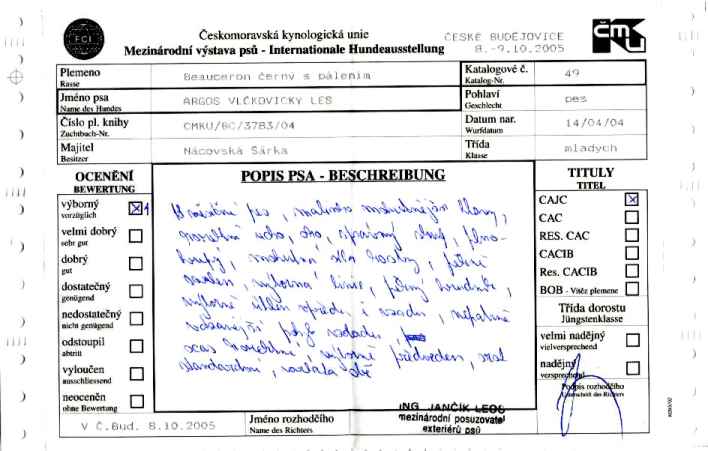 FCI
Českomoravská kynologická unie
Mezinárodní výstava psů - Internationale Hundeausstellung
ČESKÉ BUDĚJOVICE
8.-9.10.2005
ČMKU
Plemeno
Rasse
Beauceron černý s pálením
Katalogové č.
Katalog-Nr.
49
Jméno psa
Name des Hundes
ARGOS VLČKOVICKÝ LES
Pohlaví
Geschlecht
pes
Číslo pl. knihy
Zuchtbuch-Nr.
CMKU/BC/3783/04
Datum nar.
Wurfdatum
14/04/04
Majitel
Besitzer
Nácovská Šárka
Třída
Klasse
mladých
OCENĚNÍ
BEWERTUNG
výborný
vorzüglich
X 1
velmi dobrý
sehr gut
dobrý
gut
dostatečný
genügend
nedostatečný
nicht genügend
odstoupil
abtritt
vyloučen
ausschliessend
neoceněn
ohne Bewertung
POPIS PSA - BESCHREIBUNG
pes, mohutnější hlavy,
ucho, oko, správný skus, plno-
chrupý, mohutná
výborná linie, pěkný hrudník,
výborné úhlení vpředu i vzadu,
vzadu,
ocas korektní, výborně předveden, srst
standardní
TITULY
TITEL
CAJC
X
CAC
RES. CAC
CACIB
Res. CACIB
BOB - Vítěz plemene
Třída dorostu
Jüngstenklasse
velmi nadějný
vielversprechend
nadějný
versprechend
Podpis rozhodčího
Unterschrift des Richters
V Č.Bud. 8.10.2005
Jméno rozhodčího
Name des Richters
ING. JANČÍK LEOŠ
mezinárodní posuzovatel
exteriérů psů